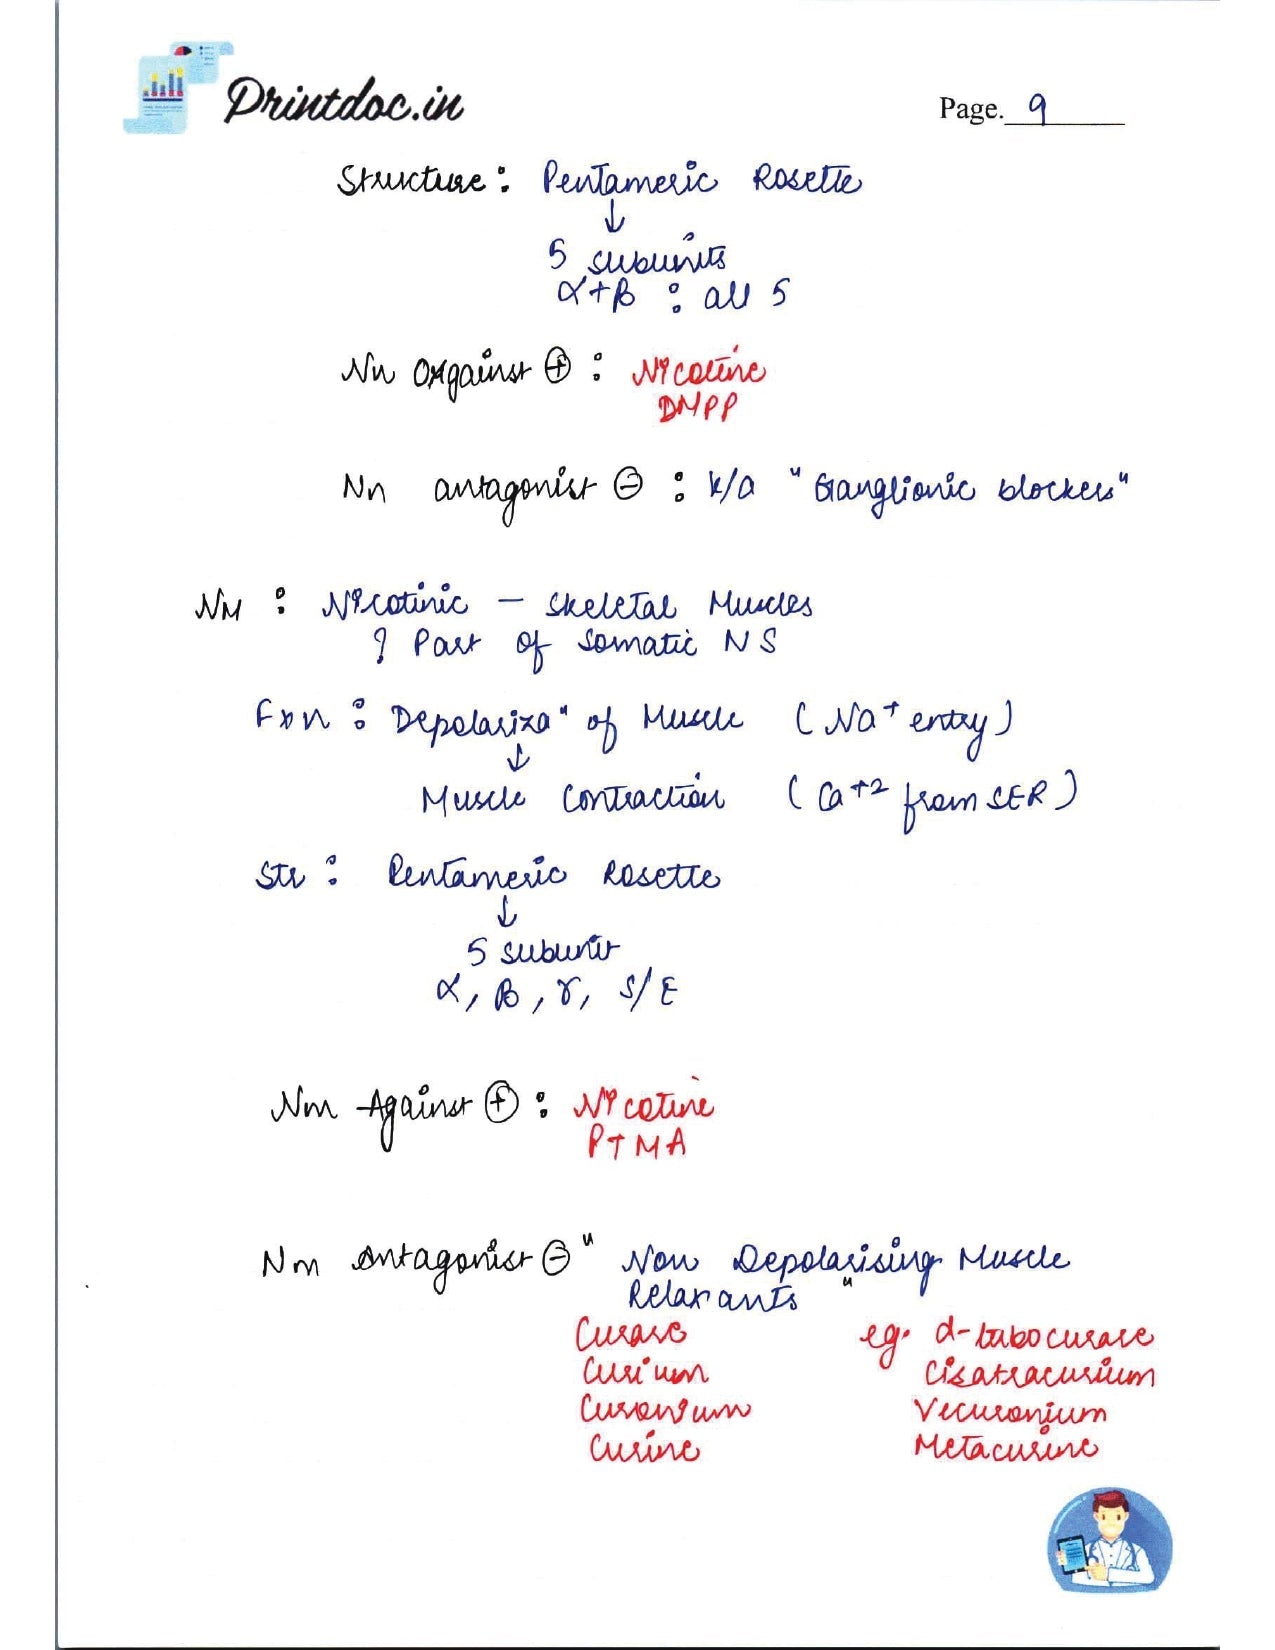 Printdoc.in
Page. 9
Structure : Pentameric Rosette
↓
5 subunits
α+β : all 5
Nn Orgainst ⊕ : Nicotine
DMPP
Nn antagonist ⊖ : k/a "Ganglionic blockers"
NM : Nicotinic – Skeletal Muscles
Part of Somatic NS
Fxn : Depolarizaⁿ of Muscle (Na+ entry)
↓
Muscle Contraction (Ca+2 from SER)
Str : Pentameric Rosette
↓
5 subunit
α, β, γ, S/E
Nm Againist ⊕ : Nicotine
PTMA
Nm Antagonist ⊖ "Non Depolarising Muscle
Relaxants"
Curare eg. d-tubocurare
Curium Cisatracurium
Curonium Vecuronium
Curine Metacurine